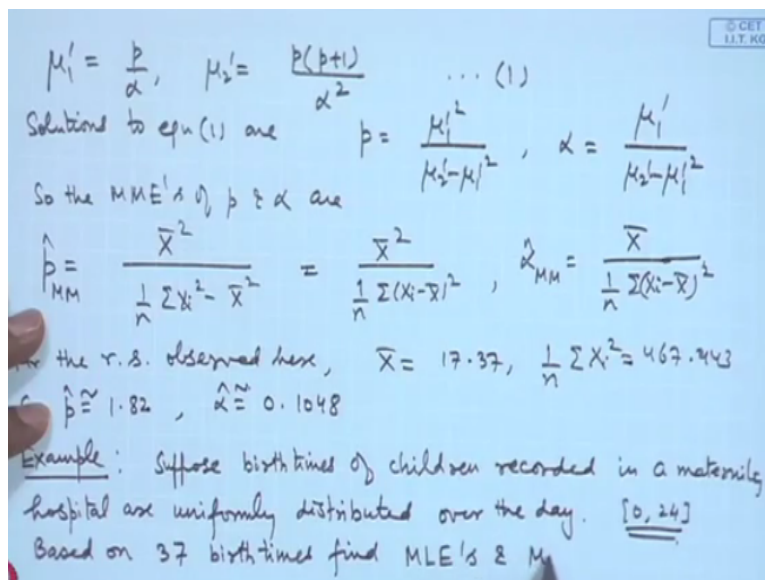 © CET
I.I.T. KG
μ₁' = p/α, μ₂' = p(p+1)/α² ... (1)
Solutions to eqn (1) are p = μ₁'²/(μ₂'-μ₁'²), α = μ₁'/(μ₂'-μ₁'²)
So the MME's of p & α are
p̂_MM = X̄²/((1/n) ΣXi² - X̄²) = X̄²/((1/n) Σ(Xi-X̄)²), α̂_MM = X̄/((1/n) Σ(Xi-X̄)²)
the r.s. observed here, X̄ = 17.37, (1/n) ΣXi² = 467.443
p̂ ≅ 1.82, α̂ ≅ 0.1048
Example: Suppose birth times of children recorded in a maternity
hospital are uniformly distributed over the day. [0, 24]
Based on 37 birth times find MLE's & M